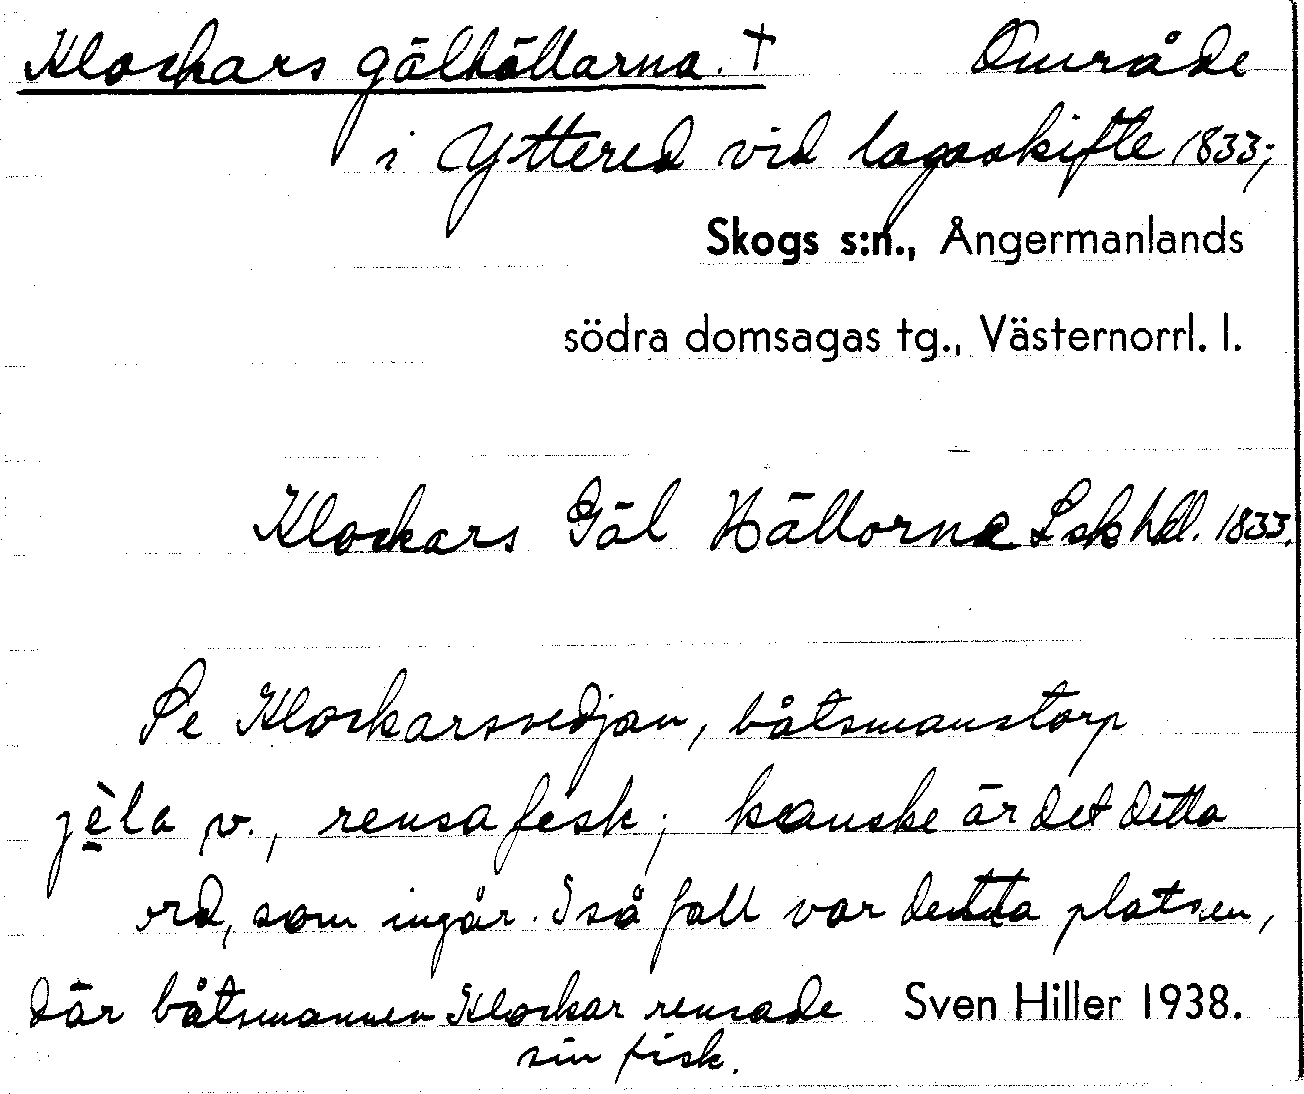 Klockars gälhällarna. † Område
i Yttered vid lagaskifte 1833;
Skogs s:n., Ångermanlands
södra domsagas tg., Västernorrl. l.
Klockars Gäl Hällorna Lskhdl. 1833.
Se Klockarsvedjan, båtsmanstorp
jèla v., rensa fisk; kanske är det detta
ord, som ingår. I så fall var detta platsen,
där båtsmannen Klockar rensade Sven Hiller 1938.
sin fisk.